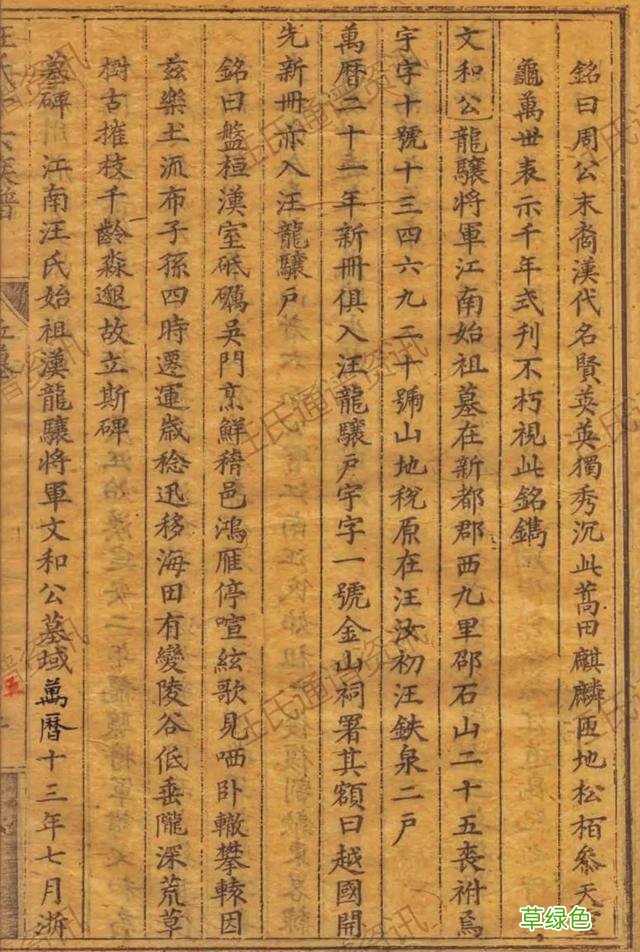 銘曰周公末裔漢代名賢英英獨秀沉此蒿田麒麟匝地松栢叅天
龜萬世表示千年式刊不朽視此銘鐫
文和公龍驤將軍江南始祖墓在新都郡西九里邵石山二十五喪祔焉
宇字十號十三四六九二十號山地稅原在汪汝初汪鉄泉二戶
萬曆二十一年新冊俱入汪龍驤戶宇字一號金山祠署其額曰越國開
先新冊亦入汪龍驤戶
銘曰盤桓漢室砥礪吳門烹鮮稽邑鴻雁停喧絃歌見哂卧轍攀轅因
兹樂土流布子孫四時遷運歲稔迅移海田有變陵谷低垂隴深荒草
樹古摧枝千齡淼邈故立斯碑
墓碑 江南汪氏始祖漢龍驤將軍文和公墓域萬曆十三年七月浙
汪氏十六族譜
五
汪氏通譜资讯
草绿色